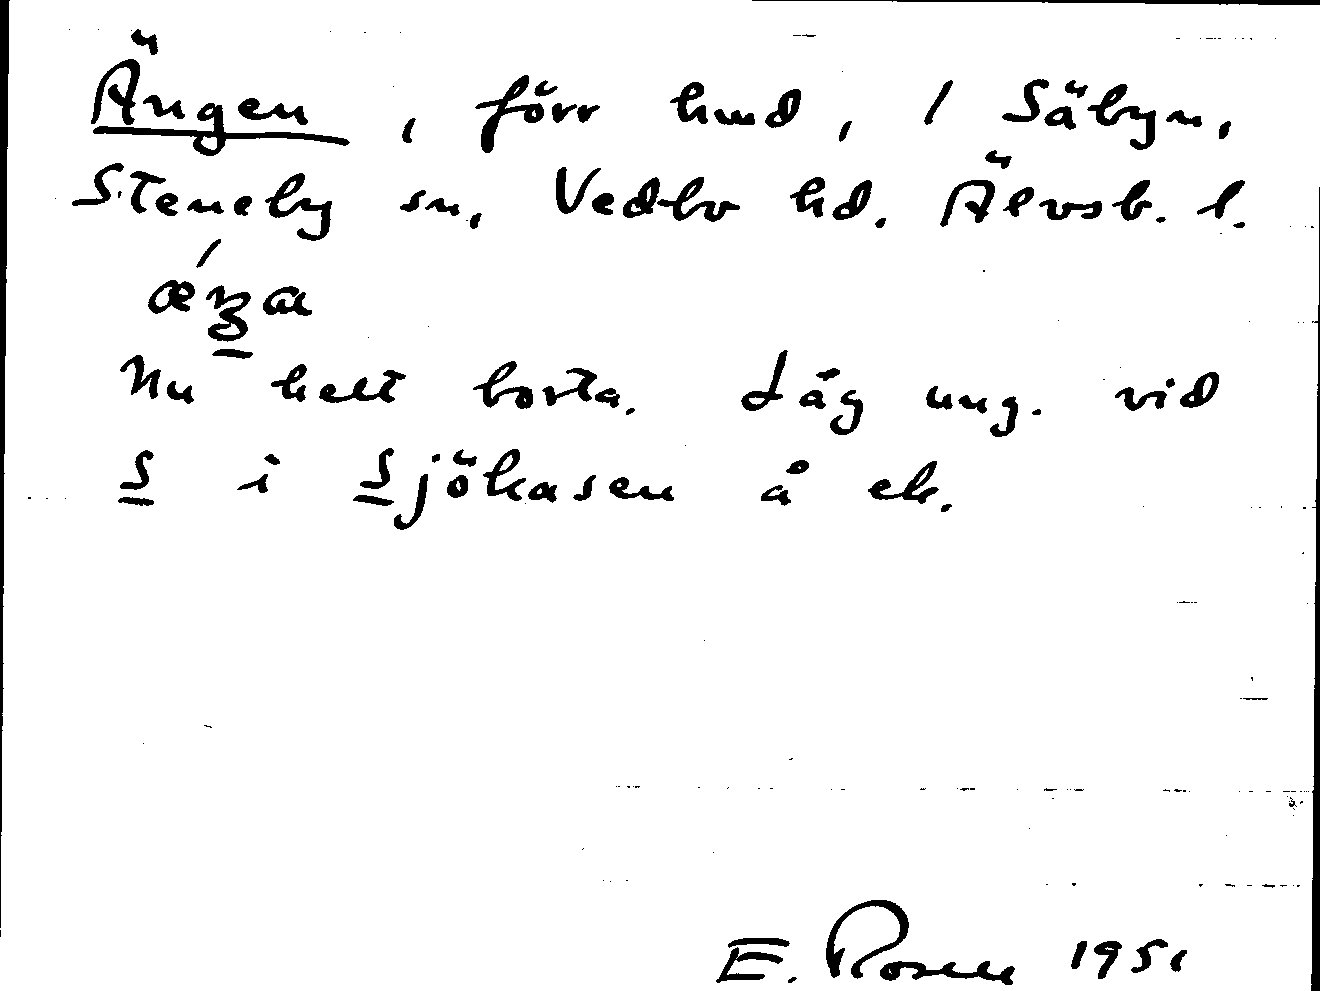 Ängen, förr hmd, / Säbyn,
Steneby sn, Vedbo hd. Älvsb. l.
Nu helt borta. Låg ung. vid
S i Sjökasen å ek.
E. Rosen 1951